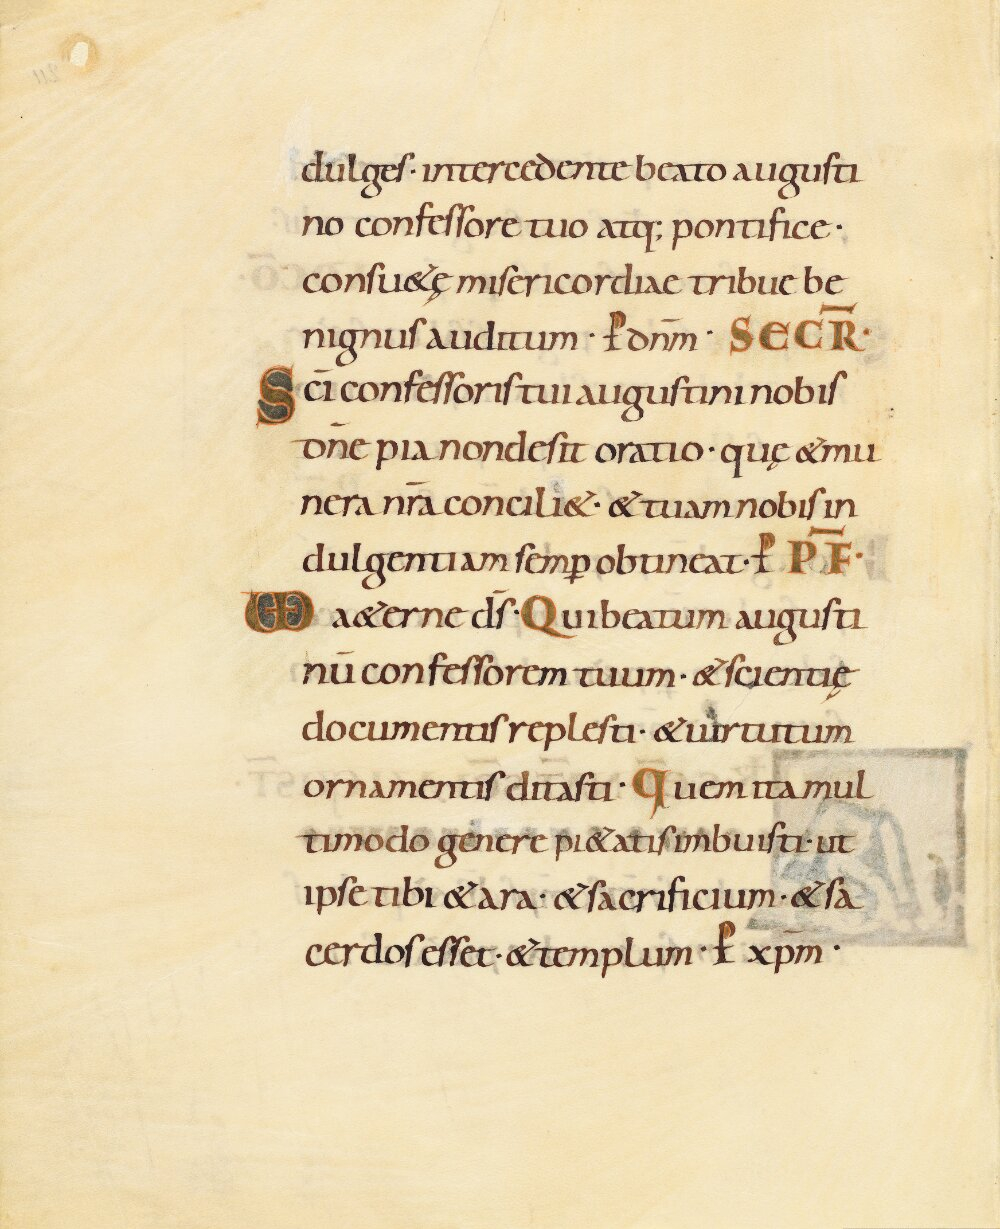 dulges· intercedente beato augusti
no confessore tuo atq; pontifice·
consu&ę misericordiae tribue be
nignus auditum· ꝑ dn̄m· SECR̄·
Sc̄i confessoris tui augustini nobis
dn̄e pia non desit oratio· quę & mu
nera nr̄a concili&· & tuam nobis in
dulgentiam semꝑ obtineat· ꝑ P̄F·
UD a&erne d̄s· Qui beatum augusti
nū confessorem tuum· & scientię
documentis replesti· & uirtutum
ornamentis ditasti· Quem ita mul
timodo genere pi&atis imbuisti· ut
ipse tibi & ara· & sacrificium· & sa
cerdos esset· & templum· ꝑ xp̄m·